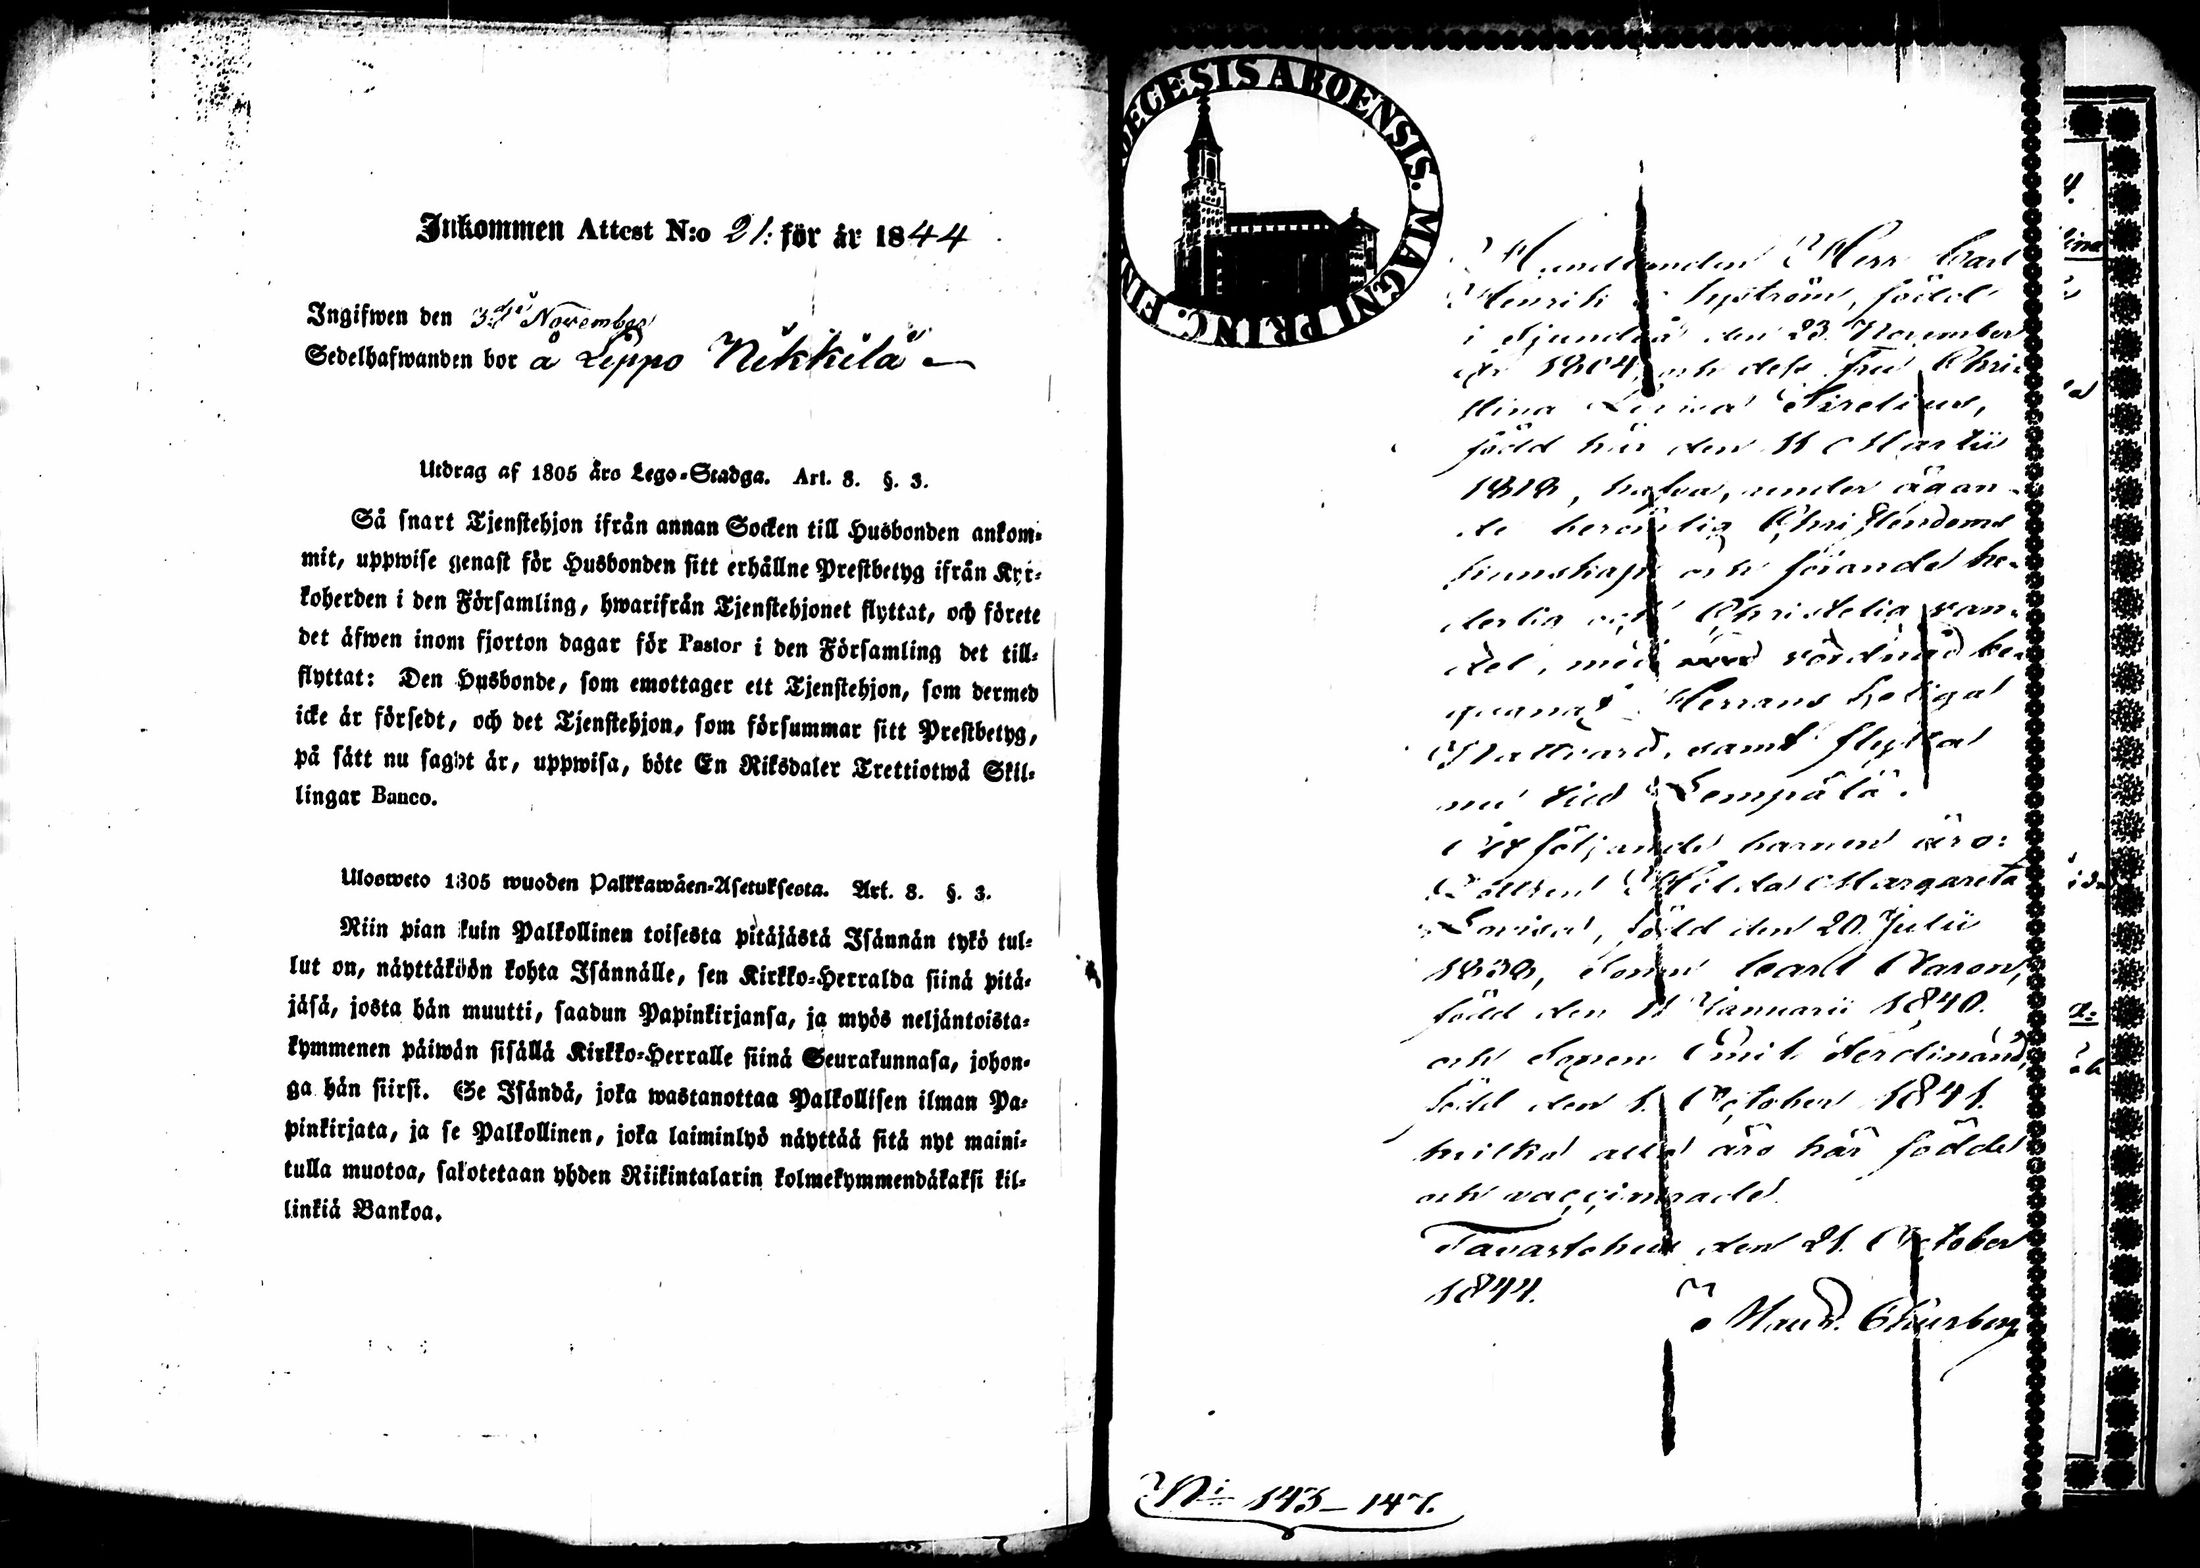 Inkommen Attest N:o 21: för år 1844
Ingifwen den 3die November
Sedelhafwanden bor å Leppo Nikkilä
Utdrag af 1805 års Lego-Stadga. Art. 8. §. 3.
Så snart Tjenstehjon ifrån annan Socken till Husbonden ankom-
mit, uppwise genast för Husbonden sitt erhållne Prestbetyg ifrån Kyr-
koherden i den Församling, hwarifrån Tjenstehjonet flyttat, och förete
det äfwen inom fjorton dagar för Pastor i den Församling det till-
flyttat: Den Husbonde, som emottager ett Tjenstehjon, som dermed
icke är försedt, och det Tjenstehjon, som försummar sitt Prestbetyg,
på sätt nu sagdt är, uppwisa, böte En Riksdaler Trettiotwå Skil-
lingar Banco.
Ulosweto 1805 wuoden Palkkawäen-Asetuksesta. Art. 8. §. 3.
Niin pian kuin Palkollinen toisesta pitäjästä Isännän tykö tul-
lut on, näyttäköön kohta Isännälle, sen Kirkko-Herralda siinä pitä-
jäsä, josta hän muutti, saadun Papinkirjansa, ja myös neljäntoista-
kymmenen päiwän sisällä Kirkko-Herralle siinä Seurakunnasa, johon-
ga hän siirsi. Se Isändä, joka wastanottaa Palkollisen ilman Pa-
pinkirjata, ja se Palkollinen, joka laiminlyö näyttää sitä nyt maini-
tulla muotoa, sakotetaan yhden Riikintalarin kolmekymmendäkaksi kil-
linkiä Bankoa.
DIOECESIS ABOENSIS. MAGNI PRINC. FIN
Herr Carl
Henrik Nyström, född
i Sjundeå den 23. November
år 1804, och dess Fru Chri-
stina Lovisa Sirelius,
född här den 11 Martii
1818, hafva, under ägan-
de berömlig Christendoms
kunskap och förande he-
derlig och Christelig van-
del, med vördnad be-
gagnat Herrans heliga
Nattvard, samt flytta
nu till Lempälä.
Åtföljande barnen äro:
Dottren Hilda Margareta
Lovisa, född den 20. Julii
1838, Sonen Carl Aaron,
född den 11 Januarii 1840.
och Sonen Emil Ferdinand,
född den 1. October 1841.
hvilka alla äro här födde
och vaccinerade.
Tavastehus den 21. October
1844.
Thurberg
N:i 143–147.